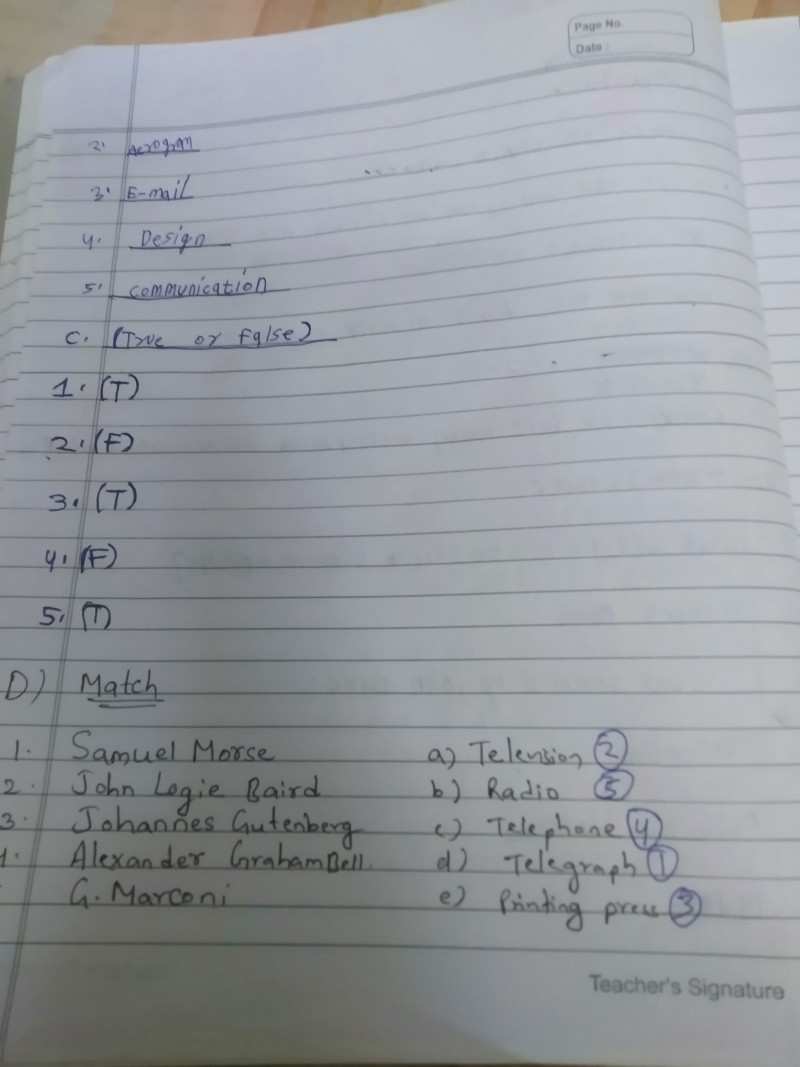 Page No.
Date :
2. Aerogran
3. E-mail
4. Design
5. Communication
C. (True or False)
1. (T)
2. (F)
3. (T)
4. (F)
5. (T)
D) Match
1. Samuel Morse a) Telension 2
2. John Logie Baird b) Radio 5
3. Johannes Gutenberg c) Telephone 4
4. Alexander GrahamBell. d) Telegraph 1
G. Marconi e) Printing press 3
Teacher's Signature